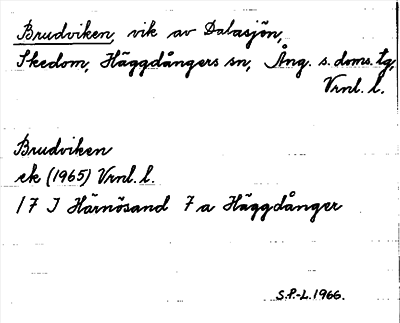 Brudviken, vik av Dalasjön,
Skedom, Häggdångers sn, Ång. s. doms. tg,
Vrnl. l.
Brudviken
ek (1965) Vrnl. l.
17 I Härnösand 7 a Häggdånger
S.P.-L. 1966.